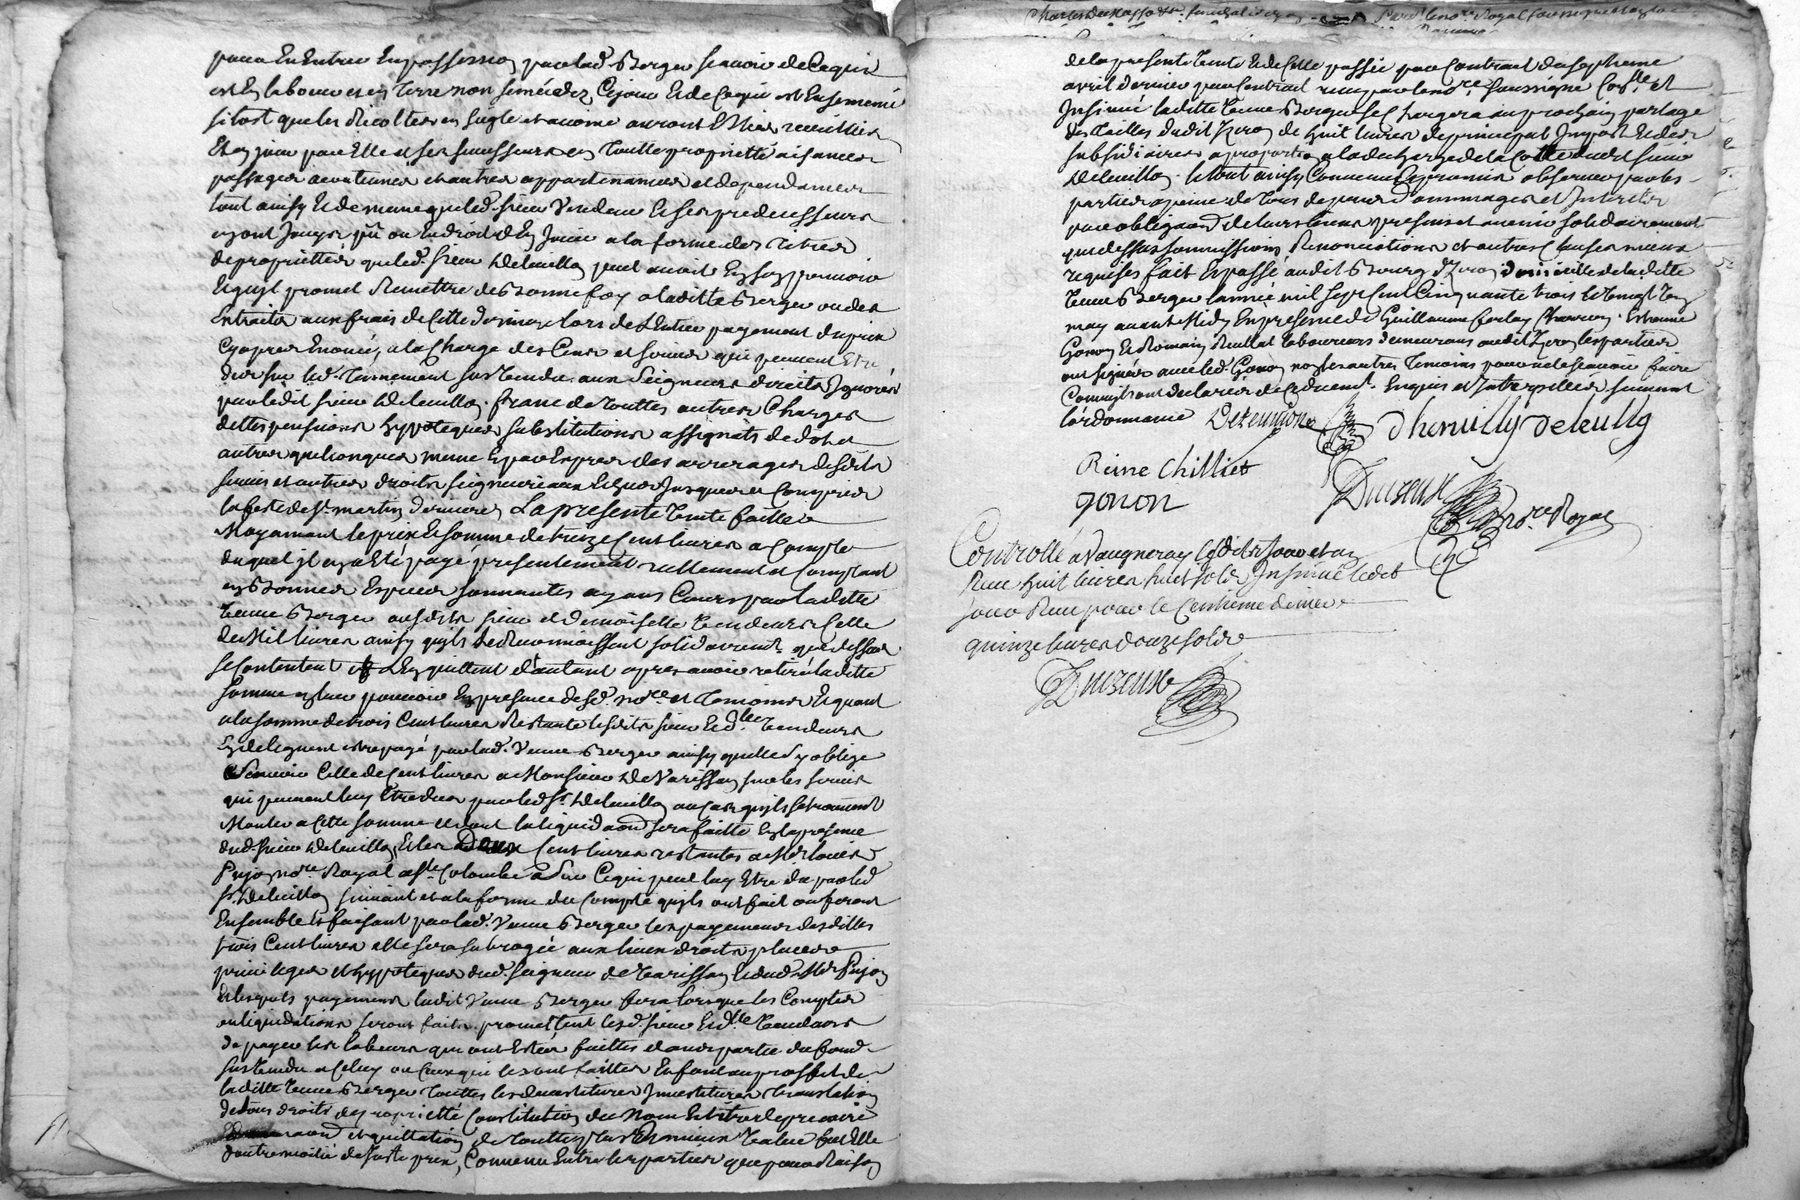 pour En Entrer En possession par lad. Berger scavoir de Ce qui
est En labour et en Terre non semée dez Ce jour Et de Ce qui est Ensemencé
sitost que les Recoltes en seigle et avoine auront Estées recueillies
Et en jouir par Elle et ses successeurs en Toutte proprietté aisances
passages coutumes et autres appartenances et dependances
tout ainsy Et de meme que led. sieur Vendeur Et ses predecesseurs
en ont Jouy ou En droit d'En Jouir a la forme des titres
de proprietté que led. sieur Deleuillon peut avoir En son pouvoir
Et qu'il promet Remettre de Bonne foy a laditte Berger ou des
Extraits aux frais de Cette derniere lors de l'Entier payement du prix
Cy apres Enoncé, a la Charge des Cens et servis qui peuvent Etre
dus sur led. Tennement sus Vendu aux Seigneurs directs Ignorés
par ledit sieur Deleuillon franc de Touttes autres Charges
dettes pensions hypoteques substitutions assignats de dot et
autres quelconques meme Et par Exprès des arrerages desdits
servis et autres droits seigneuriaux Echus Jusques et Compris
la feste de St. martin derniere La presente Vente faitte
Moyenant le prix Et somme de treize Cent livres a Compte
duquel jl en a Eté payé presentement reellement et Comptant
en Bonnes Especes sonnantes ayans Cours par laditte
Veuve Berger ausdits sieur et demoiselle Vendeurs Celle
de Mil livres ainsy qu'ils le Reconnoissent solidairement que dessus
se Contentent et L'En quittent d'autant apres avoir retiré laditte
somme en leur pouvoir En presence desd. nore. et Temoins Et quant
a la somme de trois Cent livres Restante lesdits sieur Et dlle. Vendeurs
En deleguent estre payé par lad. Veuve Berger ainsy qu'elle s'y oblige
scavoir Celle de Cent livres a Monsieur De Varissan sur les servis
qui peuvent luy Etre dus par led. Sr. Deleuillon au Cas qu'ils se trouvent
Monter a Cette somme et dont la liquidaon. sera faitte En la presence
dud. sieur Deleuillon, Et les Deux Cent livres restantes a Me. louis
Pujon nore. Royal a Ste. Colombe a Sur Ce qui peut luy Etre du par led.
Sr. Deleuillon suivant et a la forme du Compte qu'ils ont fait ou feront
Ensemble Et faisant par lad. Veuve Berger les payemens desdittes
trois Cent livres elle sera subrogée aux lieux droits places
privileges et hypoteques dud. seigneur de Varissan Et dud. Me. Pujon
Et lesquels payemens ladit Veuve Berger fera lorsque les Comptes
ou liquidations seront faits promettent lesd. sieur Et dlle. Vendeurs
de payer les labours qui ont Estées faittes dans partie du fond
sus Vendu a Celuy ou Ceux qui les ont faittes En font au proffit de
laditte Veuve Berger Touttes les devestitures Investitures translation
de tous droits de proprietté Constitution du Nom Et titre de precaire
et quittation de Touttes plus values fut Elle
d'outre moitié de juste prix, Convenu Entre les parties que pour Raison
de la presente Vente Et de Celle passée par Contrat du septieme
avril dernier par Contrat reçu par le nore. soussigné Collé. et
Insinué laditte Veuve Berger se Chargera au prochain partage
des tailles dudit Yzeron de huit livres de principal Impost Et des
subsidiaires a proportion a la decharge de la Cotte dudt. sieur
Deleuillon. Et tout ainsy Convenu Et promis observer par les
parties a peine de Tous depens Dommages et Interets
par obligaon. de leurs biens presens et avenir solidairement
que dessus soumissions Renonciations et autres Clauses mieux
requises fait Et passé audit Bourg d'Yzeron domicille de laditte
Veuve Berger l'année mil sept Cent Cinquante trois Et Vingt
may avant Midy En presence de Guillaume Charron. Estienne
Gonon Et Romain Rullat laboureurs demeurans audit Yzeron les parties
ont signé avec led. Gonon non les autres Temoins pour ne le scavoir faire
Comme ils ont declaré de Ce duement. Enquis et Interpellés suivant
l'ordonnance
Dhenuilly deleullion
Reine Chilliet
gonon
Duizeux nore. Royal
Controllé a Vaugneray Cesdits Jour et an
Reçu huit livres huit sols, Insinué ledit
jour Reçu pour le Centieme denier
quinze livres douze sols
Duizeux